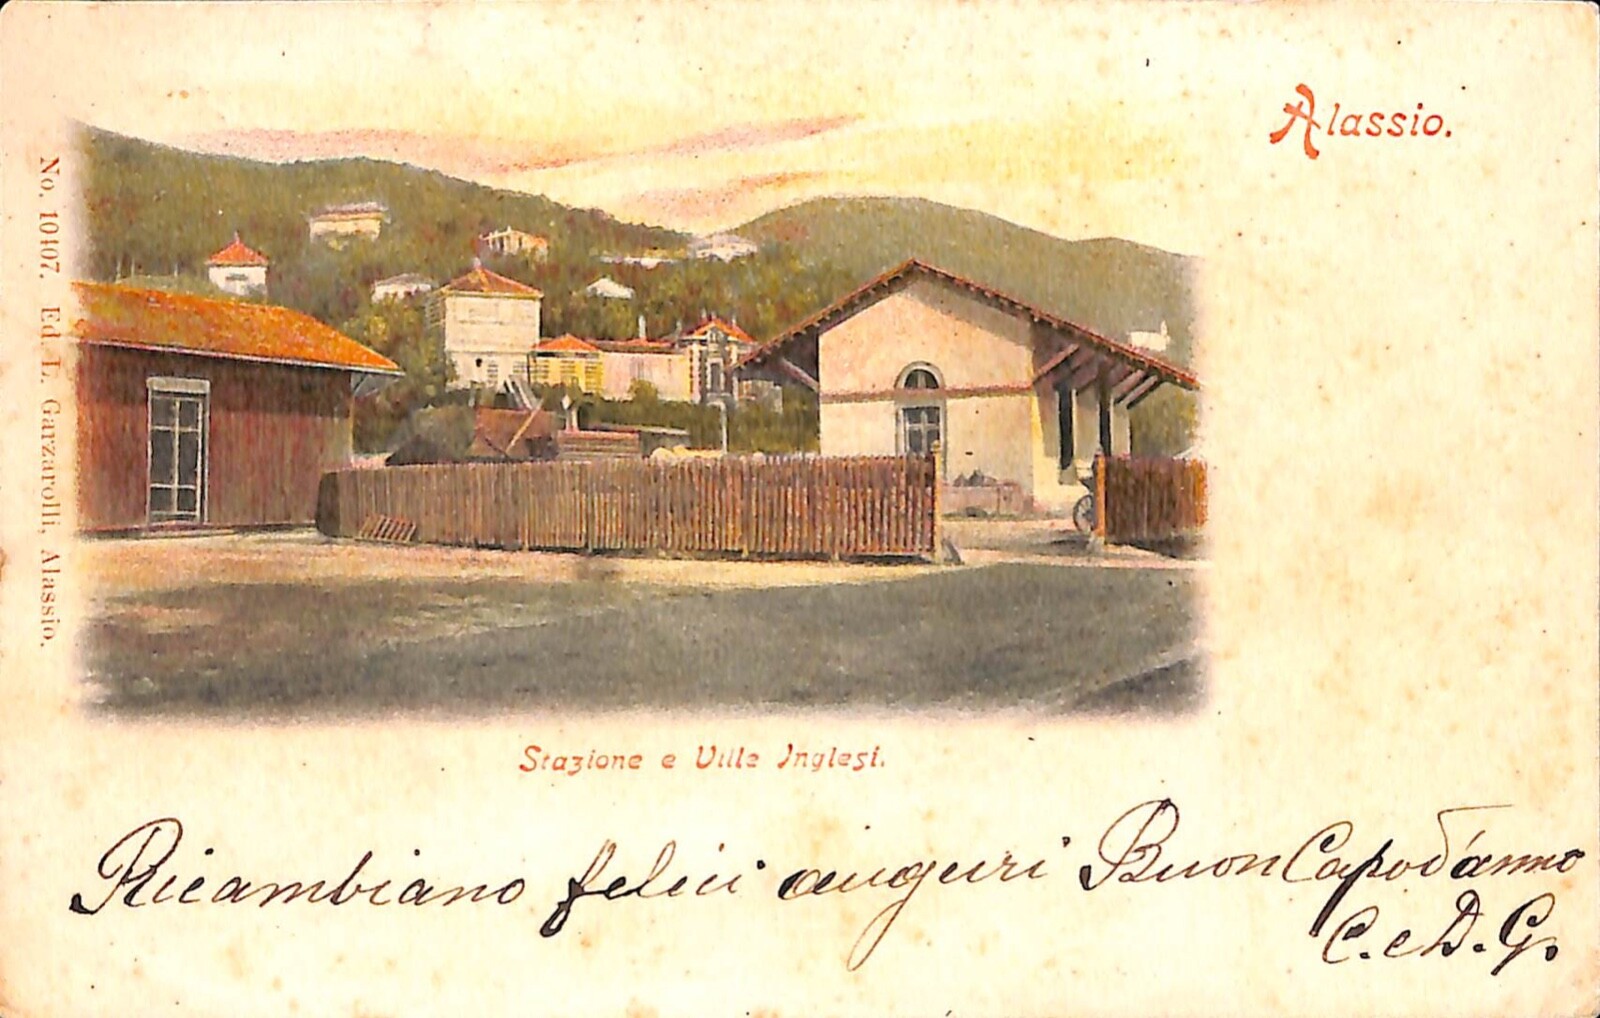 Alassio.
No. 10107. Ed. L. Garzarolli, Alassio.
Stazione e Ville Inglesi.
Ricambiano felici auguri Buon Capod'anno
C. e D. G.